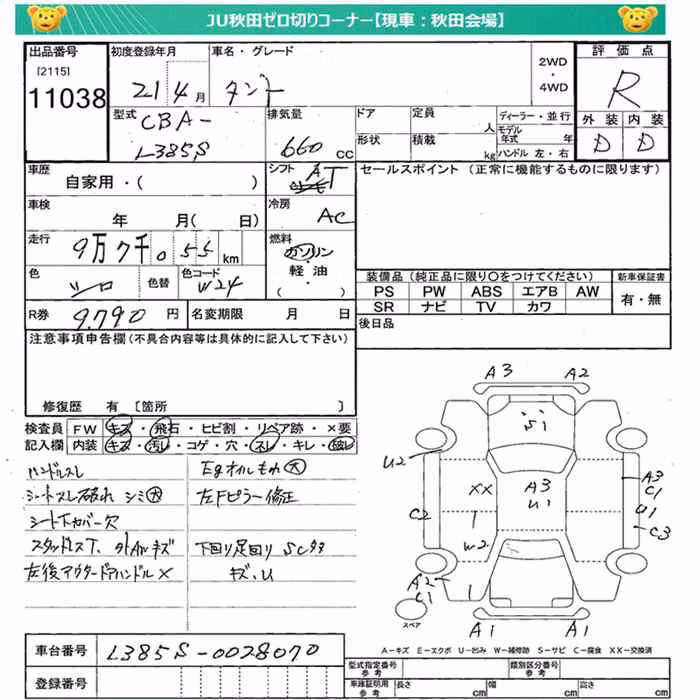 JU秋田ゼロ切りコーナー【現車：秋田会場】
出品番号
[2115]
11038
初度登録年月
21 4月
車名・グレード
タント
2WD
・
4WD
評価点
R
外装 内装
D D
型式
CBA-
L385S
排気量
660 CC
ドア
形状
定員 人
積載 kg
ディーラー・並行
モデル年式 年
ハンドル 左・右
車歴
自家用・( )
シフト
AT
セールスポイント (正常に機能するものに限ります)
車検
年 月( 日)
冷房
AC
走行
9万7千055km
燃料
ガソリン
・
軽油
・
( )
色
シロ
色替
色コード
W24
装備品 (純正品に限り〇をつけてください)
PS PW ABS エアB AW
SR ナビ TV カワ
新車保証書
有・無
R券
9.790 円
名変期限 月 日
後日品
注意事項申告欄 (不具合内容等は具体的に記入して下さい)
修復歴 有 〔箇所 〕
検査員 FW キズ・飛石・ヒビ割・リペア跡・×要
記入欄 内装 キズ・汚レ・コゲ・穴・スレ・キレ・破レ
ハンドルスレ
シートスレ破れ シミ大
シート下カバー欠
スタッドレスT. 外AWキズ
左後アウタードアハンドル×
Egオイルもれ大
左Fピラー修正
下回り足回り SCタタ
キズ、U
A3 A2
S1
U2
XX
A3
U1
A3
C1
U1
C3
C2
W2
A2
C1
A1 A1
スペア
A－キズ E－エクボ U－凹み W－補修跡 S－サビ C－腐食 XX－交換済
車台番号
L385S-0028070
登録番号
型式指定番号
参考
類別区分番号
参考
車庫証明用
参考
長さ cm
幅 cm
高さ cm